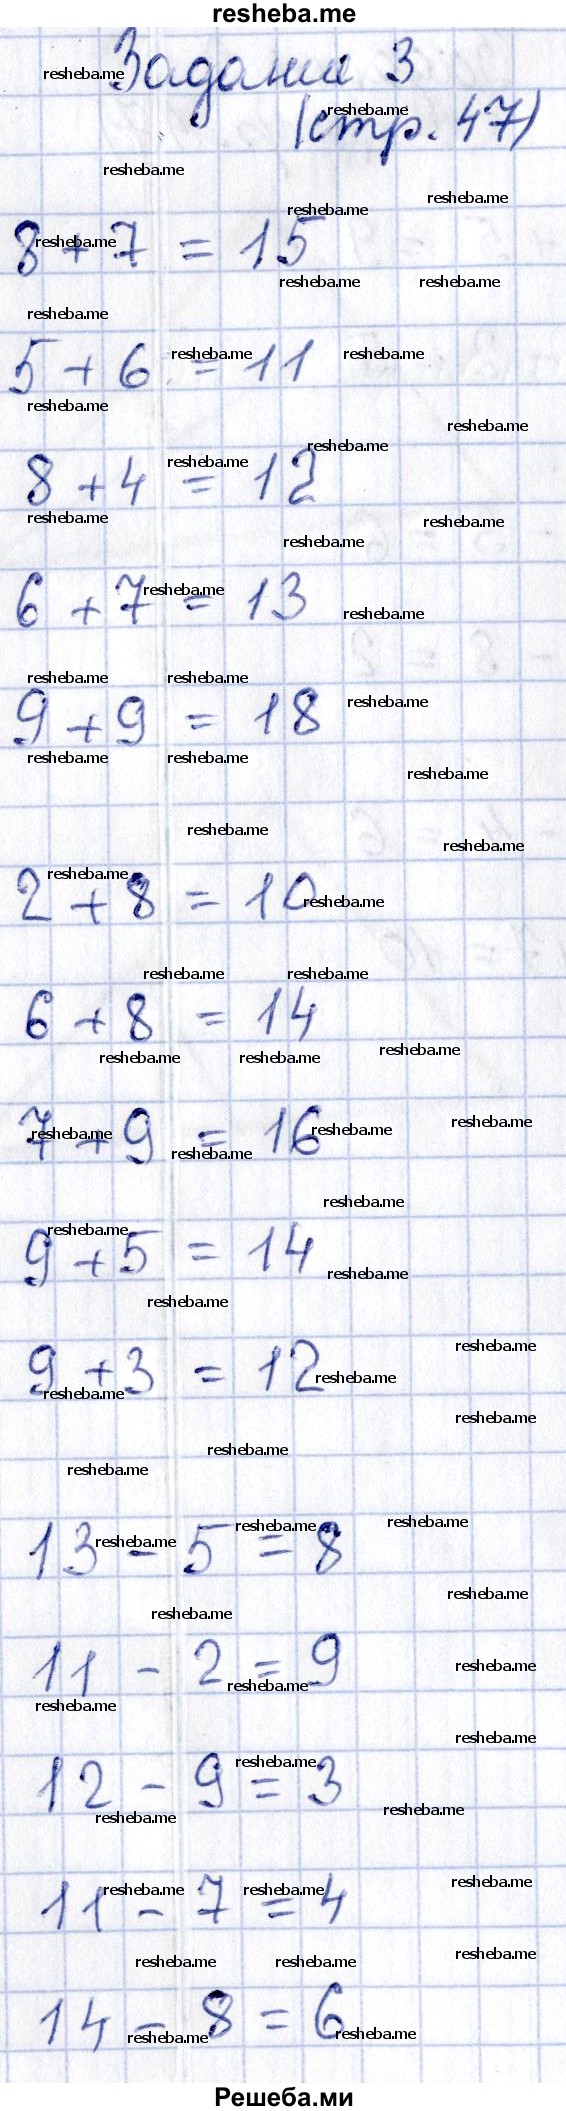 resheba.me
Задание 3
(стр. 47)
8 + 7 = 15
5 + 6 = 11
8 + 4 = 12
6 + 7 = 13
9 + 9 = 18
2 + 8 = 10
6 + 8 = 14
7 + 9 = 16
9 + 5 = 14
9 + 3 = 12
13 - 5 = 8
11 - 2 = 9
12 - 9 = 3
11 - 7 = 4
14 - 8 = 6
Решеба.ми